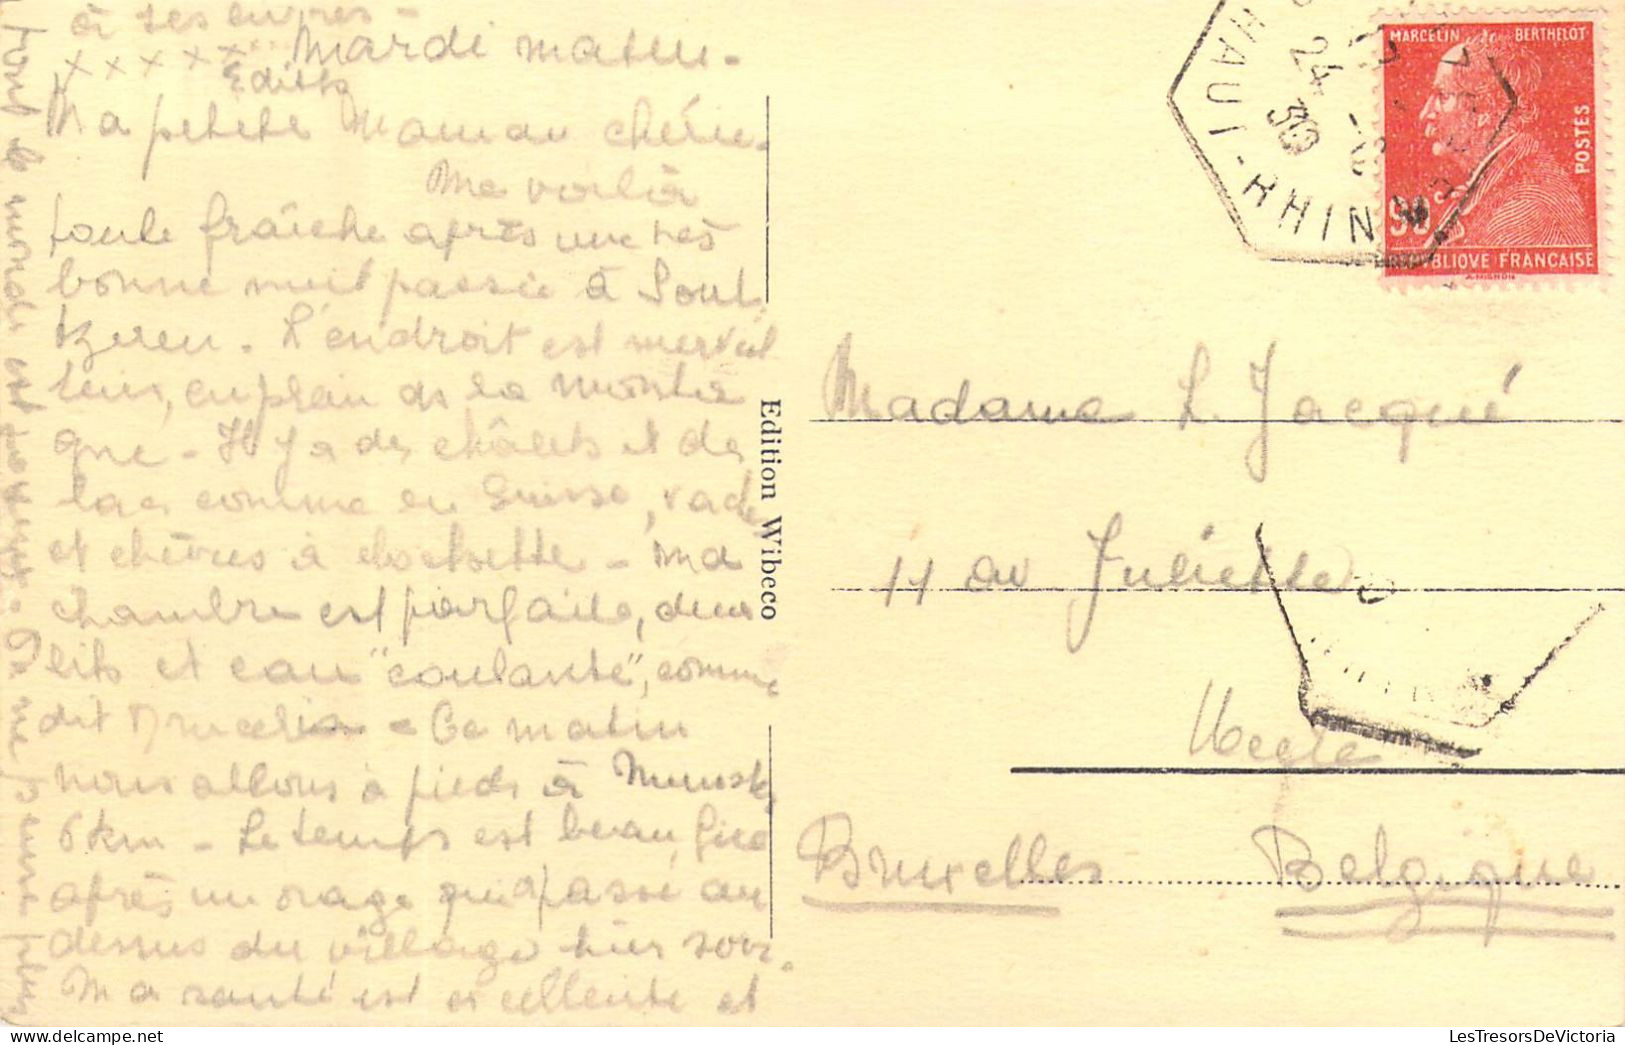 à ses
x x x x x
Mardi matin -
Edith
Ma petite Maman chérie -
Me voilà
toute fraîche après une très
bonne nuit passée à Soult
zeren. L'endroit est merveil
leux, en plein de la monta
gne - Il y a des châlets et des
lacs comme en Suisse, vaches
et chèvres à clochette - Ma
chambre est parfaite, deux
lits et eau "coulante", comme
dit - Ce matin
nous allons à pieds à Munster,
6 km - Le temps est beau,
après un orage qui a passé au
dessus du village hier soir.
Ma santé est excellente et
tout le monde est - On ne pense plus
Edition Wibeco
HAUT-RHIN
24
30
MARCELIN BERTHELOT
POSTES
90c
REPUBLIQUE FRANCAISE
Madame L. Jacqué
11 av Juliette
Uccle
Bruxelles Belgique
LesTresorsDeVictoria